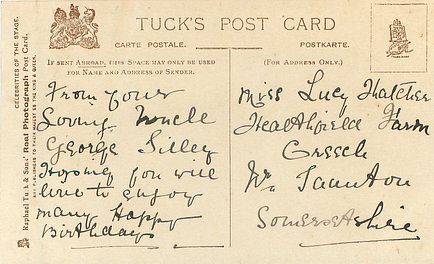 TUCK'S POST CARD
CARTE POSTALE.
POSTKARTE.
IF SENT ABROAD, THIS SPACE MAY ONLY BE USED
FOR NAME AND ADDRESS OF SENDER.
(FOR ADDRESS ONLY.)
From your
Loving Uncle
George Silley
Hoping you will
live to enjoy
many Happy
Birthdays
Miss Lucy Thatcher
Heathfield Farm
Creech
Nr Taunton
Somersetshire
CELEBRITIES OF THE STAGE.
Raphael Tuck & Sons' Real Photograph Post Card.
ART PUBLISHERS TO THEIR MAJESTIES THE KING & QUEEN.